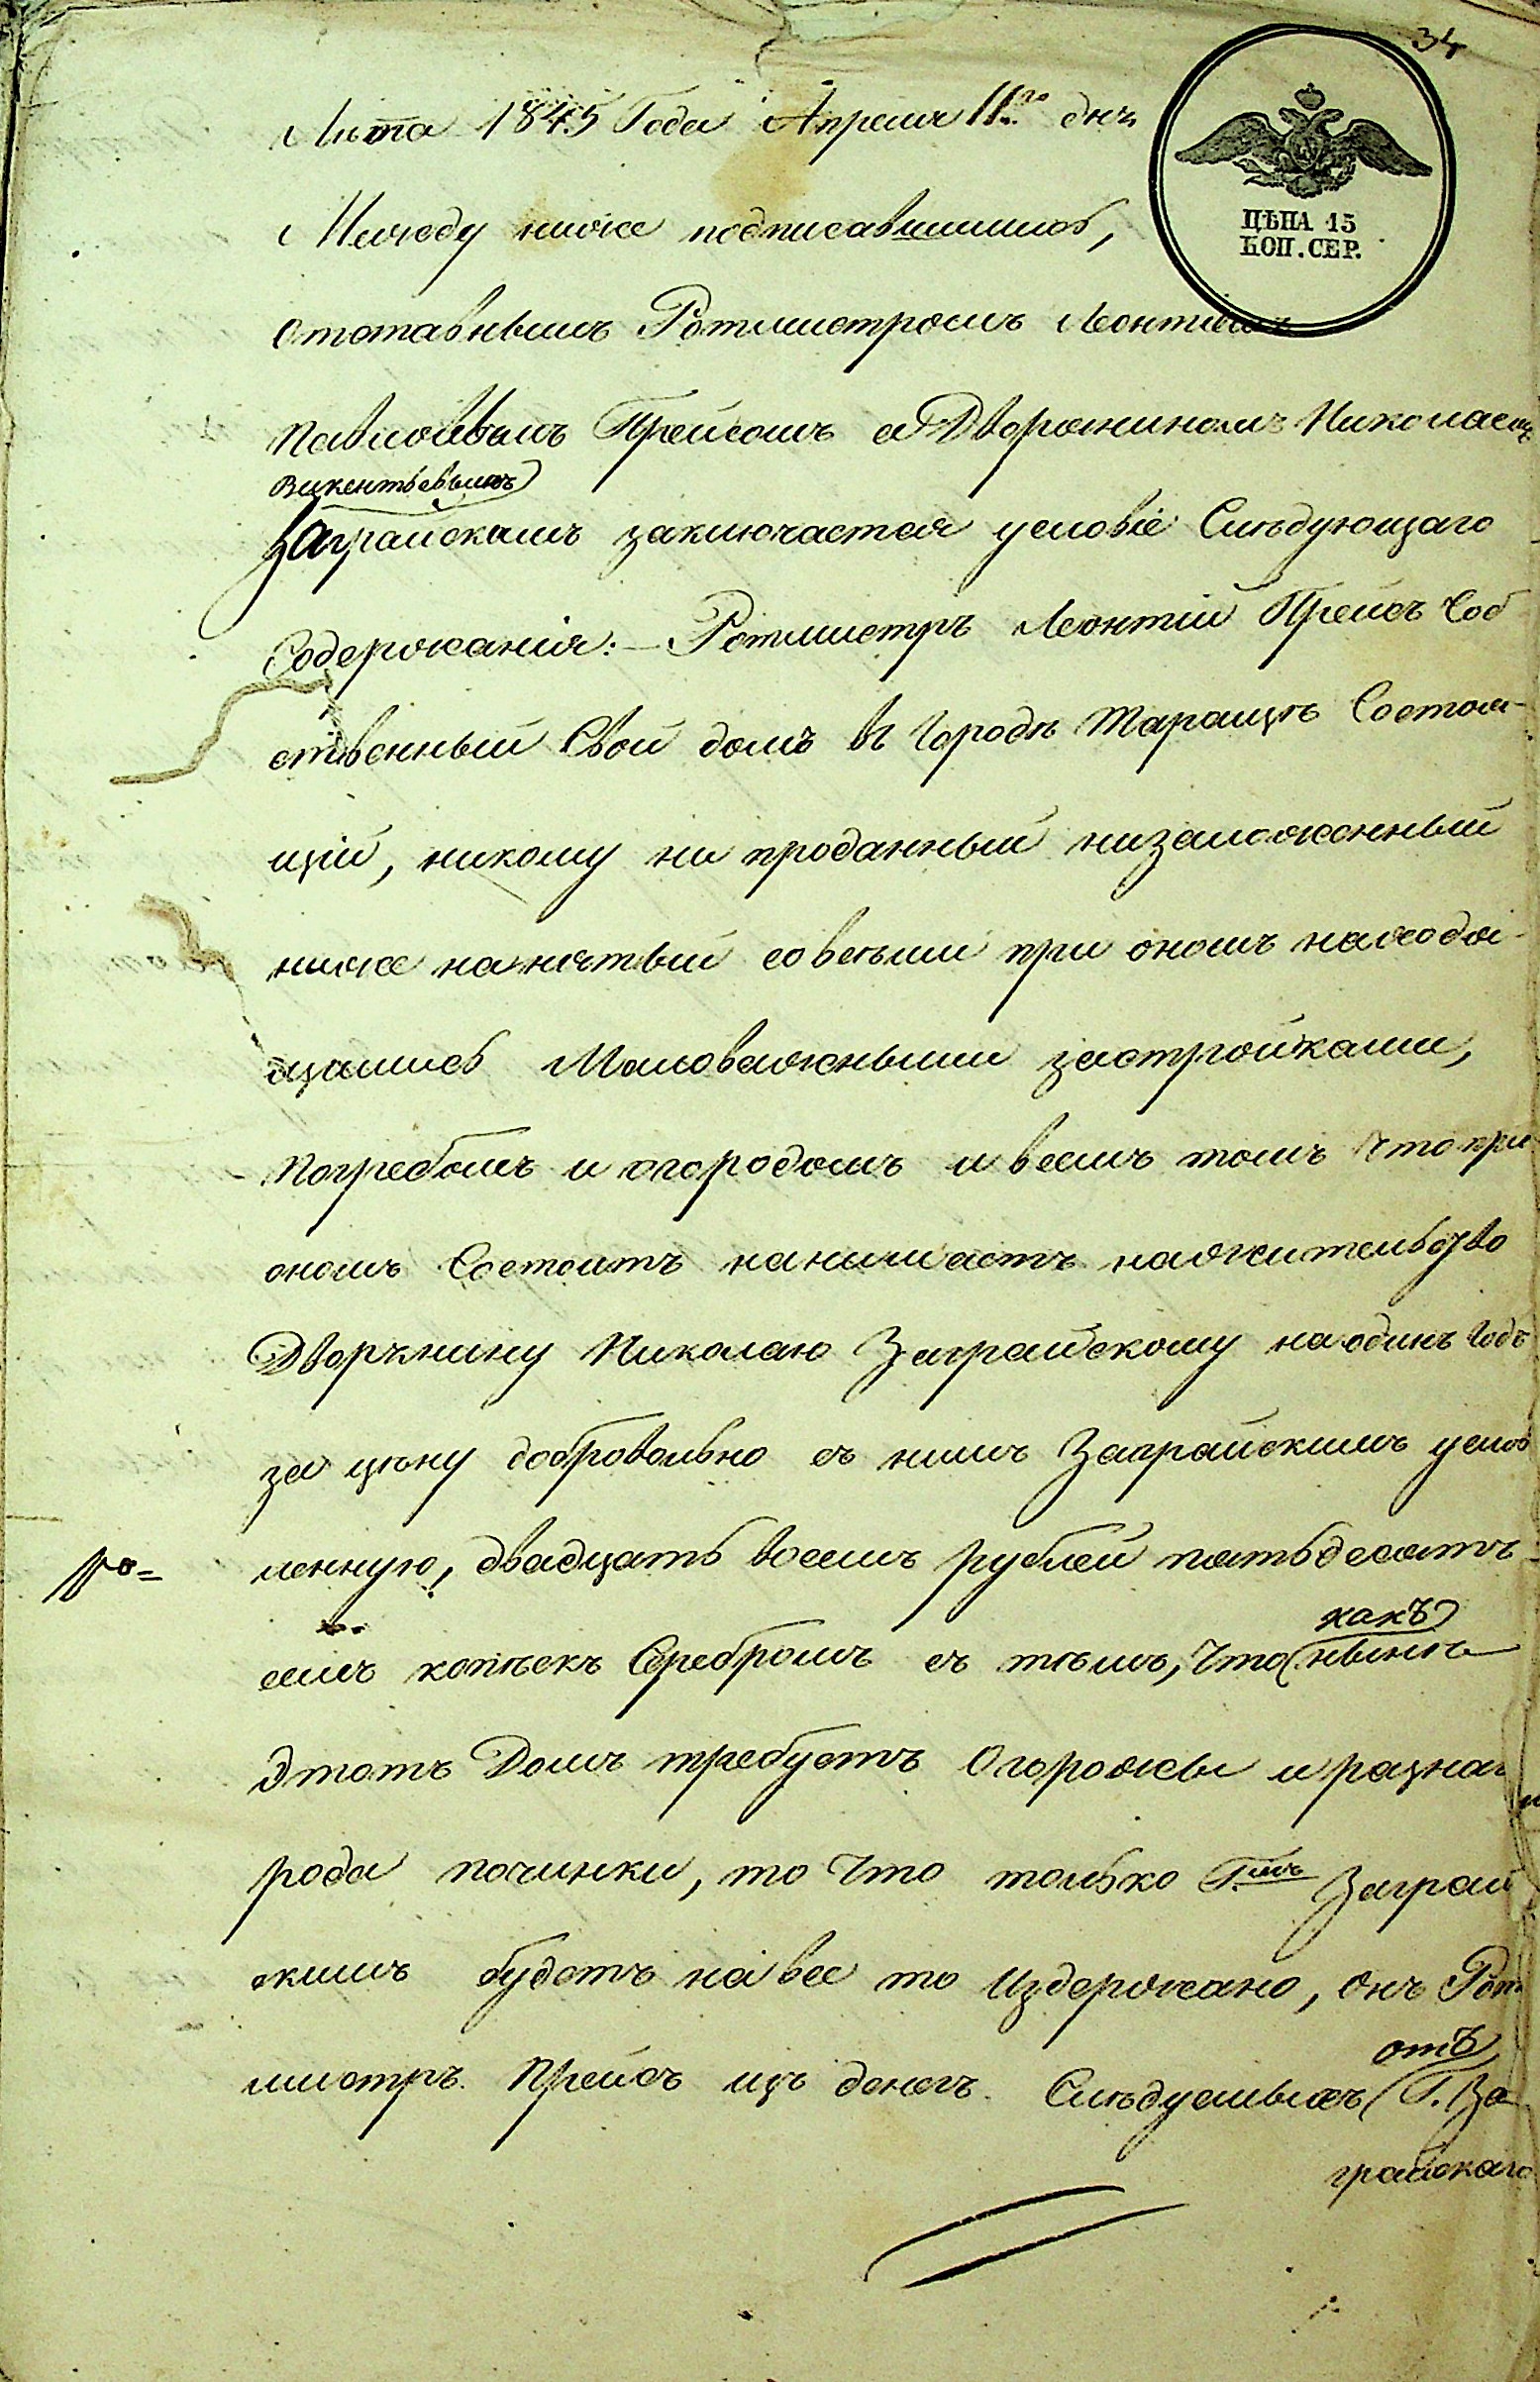 34
Лѣта 1845 Года Апреля 11го дня
ЦѢНА 15
КОП. СЕР.
Между ниже подписавшимись,
Отставнымъ Ротмистромъ Леонтіемъ
Павловымъ Прейсомъ и Дворяниномъ Николаемъ
Викентьевымъ
Заграйскимъ заключается условіе Слѣдующаго
Содержанія: – Ротмистръ Леонтій Прейсъ Соб
ственный Свой домъ въ Городѣ Таращѣ Состоя-
щій, никому ни проданный низаложенный
ниже нанятый совсѣми при ономъ находя-
щимись Маловажными застройками,
Погребомъ и огородомъ и всемъ томъ что при
ономъ Состоитъ нанимаетъ нажительство
Дворянину Николаю Заграйскому наодинъ Годъ
за цѣну добровольно съ нимъ Заграйскимъ услов
ленную, двадцать восемъ рублей пятьдесятъ
емъ копѣекъ Серебромъ съ тѣмъ, Что нынѣ
какъ
Этотъ Домъ требуетъ Огорожы и разнаго
рода починки, то Что только Г.мъ Заграй
скимъ будетъ на все то Издержано, онъ Рот
мистръ Прейсъ изъ денегъ Слѣдуемыхъ Г. За
отъ
грайскаго